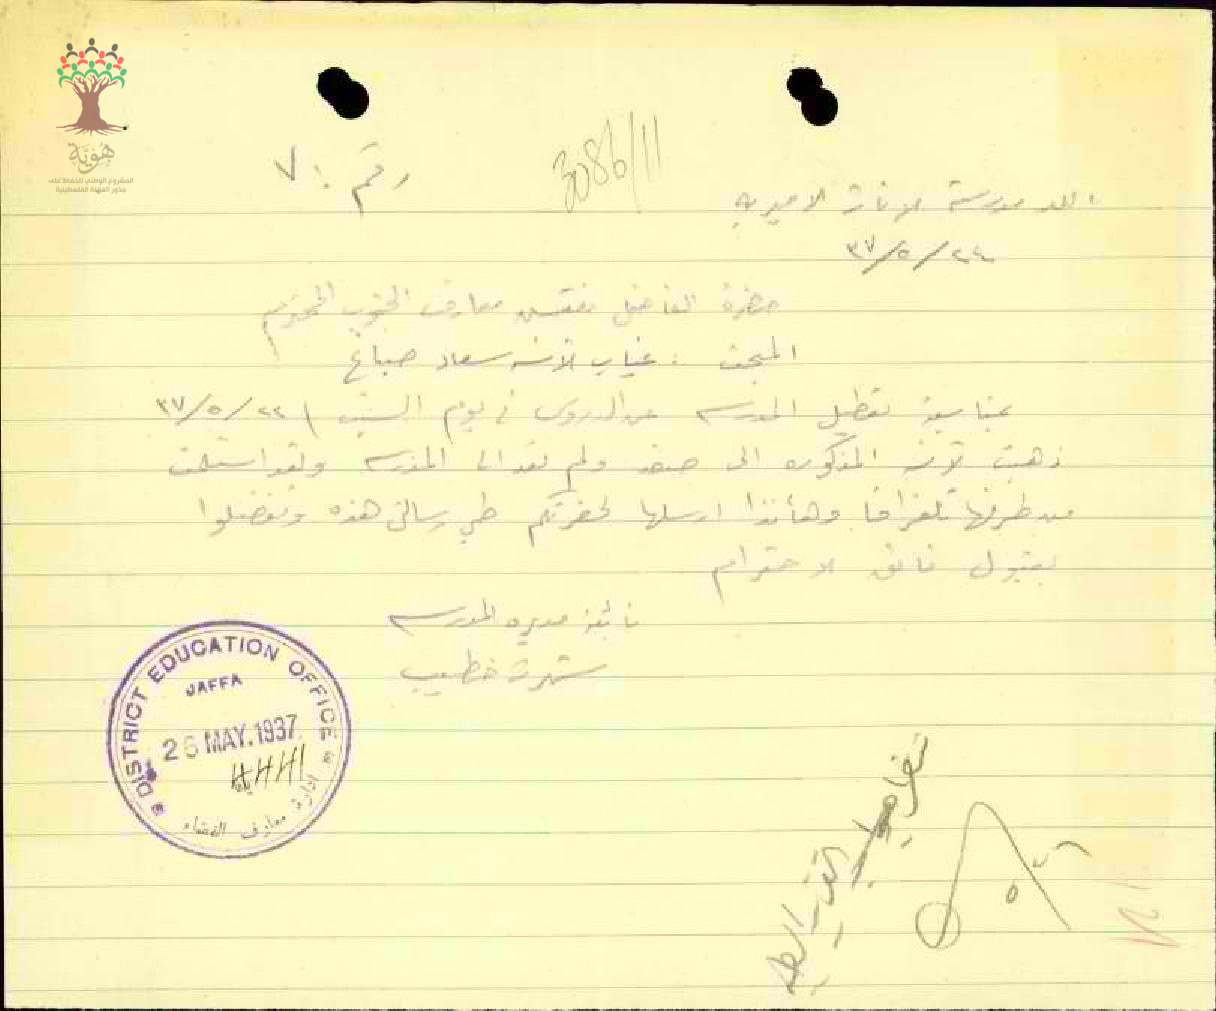 هُوِيَّة
المشروع الوطني للحفاظ على
جذور العائلة الفلسطينية
رقم : ٧
3086/11
اللد مدرسة الاناث الاميرية
٢٤/٥/٣٧
حضرة الفاضل مفتش معارف الجنوب المحترم
المبحث : غياب الآنسه سعاد صباغ
بمناسبة تعطيل المدرسه عن الدروس في يوم السبت ٢٢/٥/٣٧
ذهبت الآنسه المذكوره الى صفد ولم تعد الى المدرسه ولقد استلمت
من طرفها تلغرافا وهأنذا ارسلها لحضرتكم طي رسالتي هذه وتفضلوا
بقبول فائق الاحترام
نائبة مديره المدرسه
شهرت خطيب
DISTRICT EDUCATION OFFICE
JAFFA
26 MAY.1937
ادارة معارف القضاء